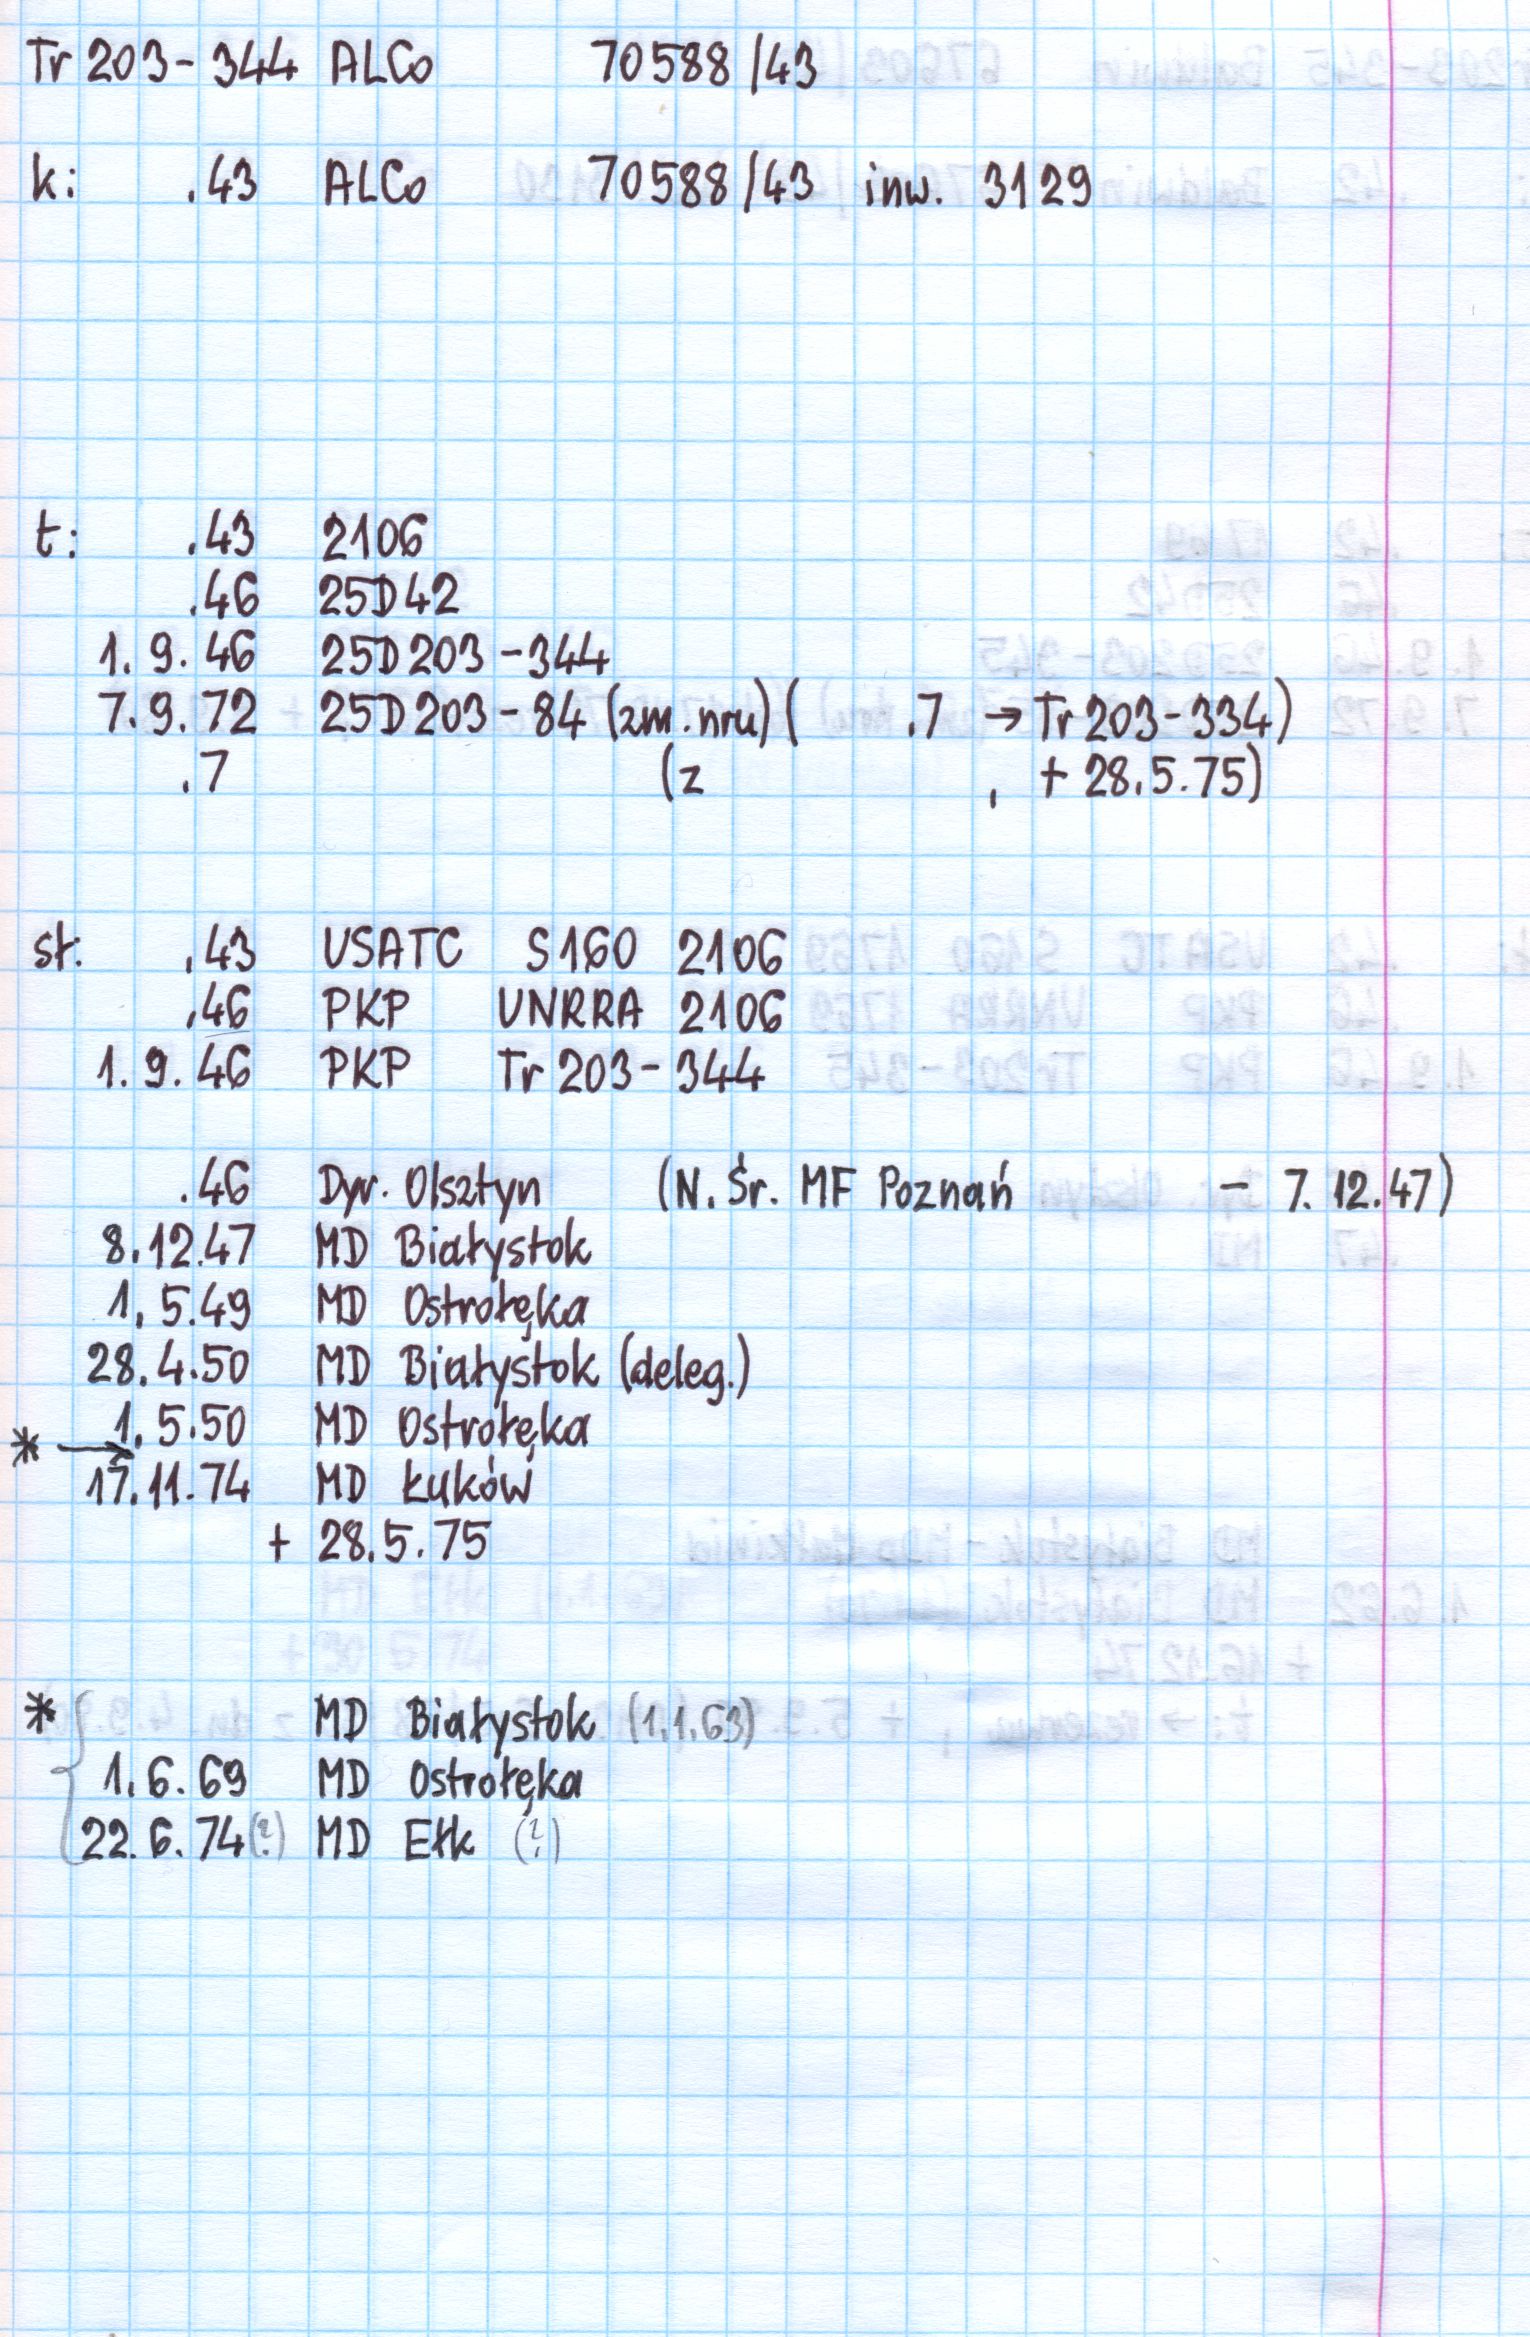 Tr 203-344 ALCo 70588/43
k: .43 ALCo 70588/43 inw. 3129
t: .43 2106
.46 25D42
1.9.46 25D203-344
7.9.72 25D203-84 (zm. nru) ( .7 → Tr 203-334)
.7 (z , + 28.5.75)
sł: .43 USATC S160 2106
.46 PKP UNRRA 2106
1.9.46 PKP Tr 203-344
.46 Dyr. Olsztyn (N. Śr. MF Poznań - 7.12.47)
8.12.47 MD Białystok
1.5.49 MD Ostrołęka
28.4.50 MD Białystok (deleg.)
1.5.50 MD Ostrołęka
* →
17.11.74 MD Łuków
+ 28.5.75
* MD Białystok (1.1.63)
1.6.69 MD Ostrołęka
22.6.74(?) MD Ełk (?)